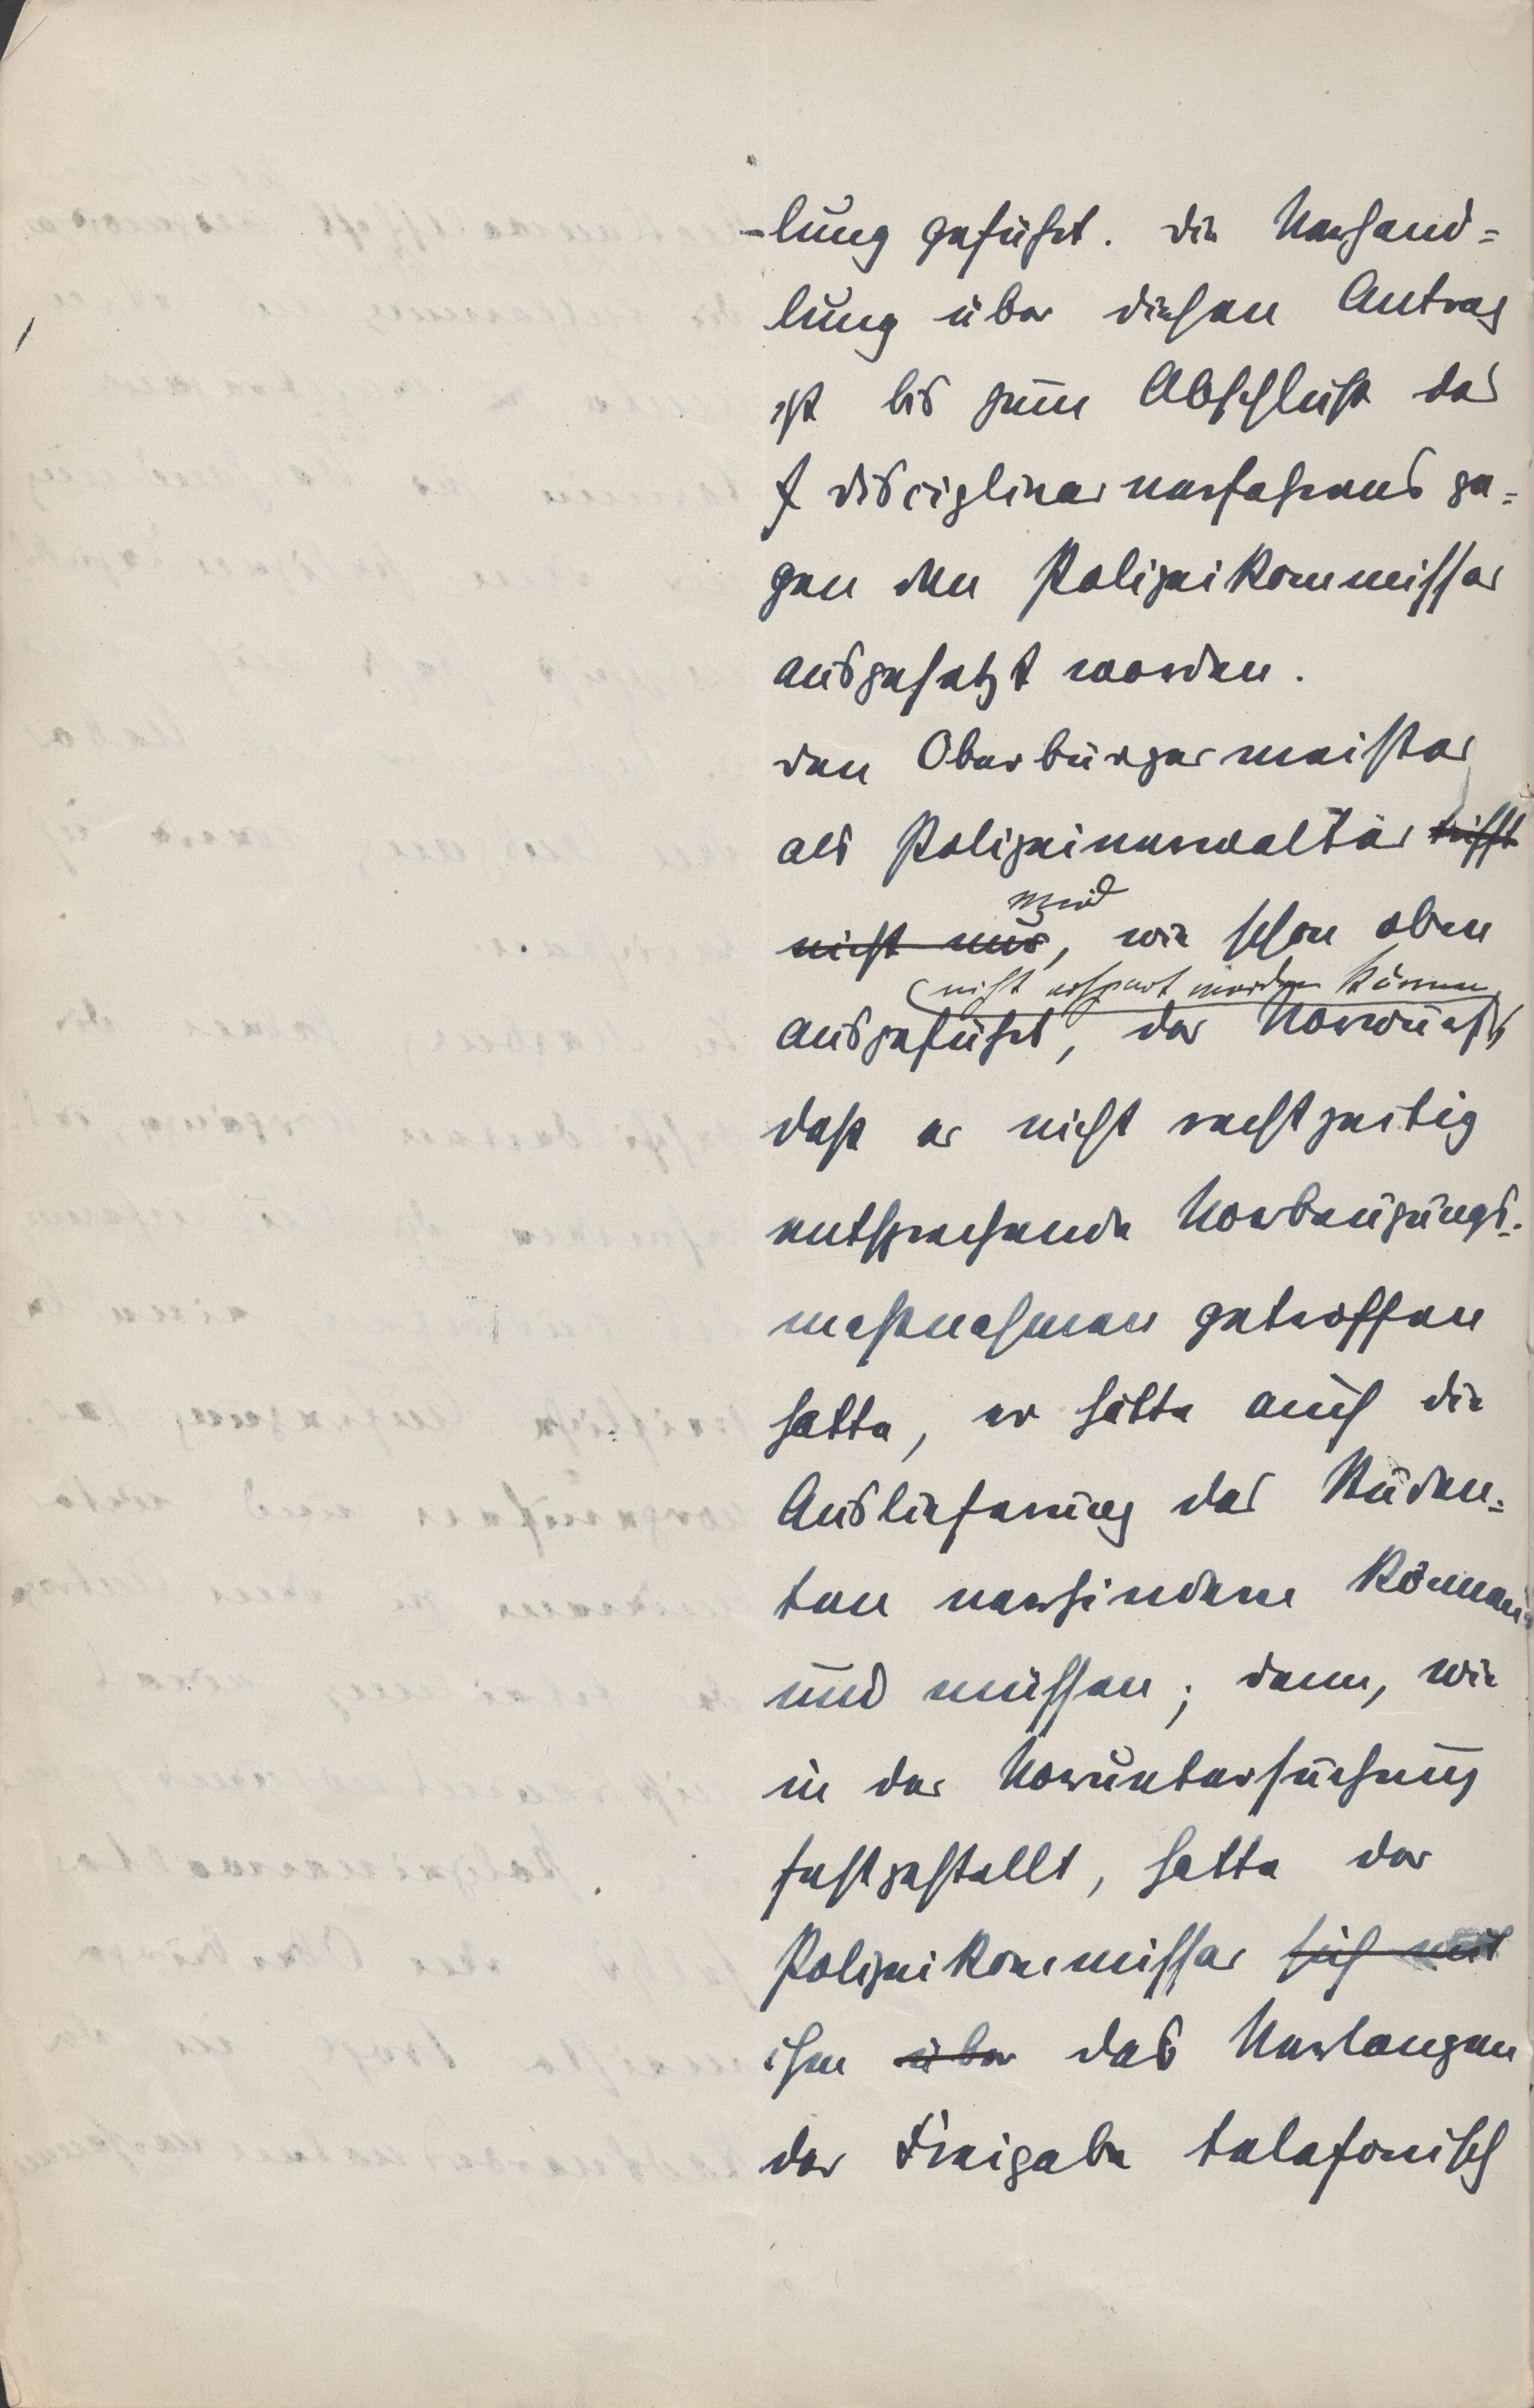 -lung geführt. Die Verhand=
lung über diesen Antrag
ist bis zum Abschluß des
f disciplinarverfahrens ge=
gen den Polizeikommissar
ausgesetzt worden.
Den Oberbürgermeister
als Polizeiverwalter trifft
wird
nicht nur, wie schon oben
(nicht erspart werden können,
ausgeführt, der Vorwurf,
daß er nicht rechtzeitig
entsprechende Vorbeugungs=
maßnahmen getroffen
hatte, er hätte auch die
Auslieferung des Studen=
ten verhindern können
und müssen; denn, wie
in der Voruntersuchung
festgestellt, hatte der
Polizeikommissar sich mit
ihm über das Verlangen
der Freigabe telefonisch